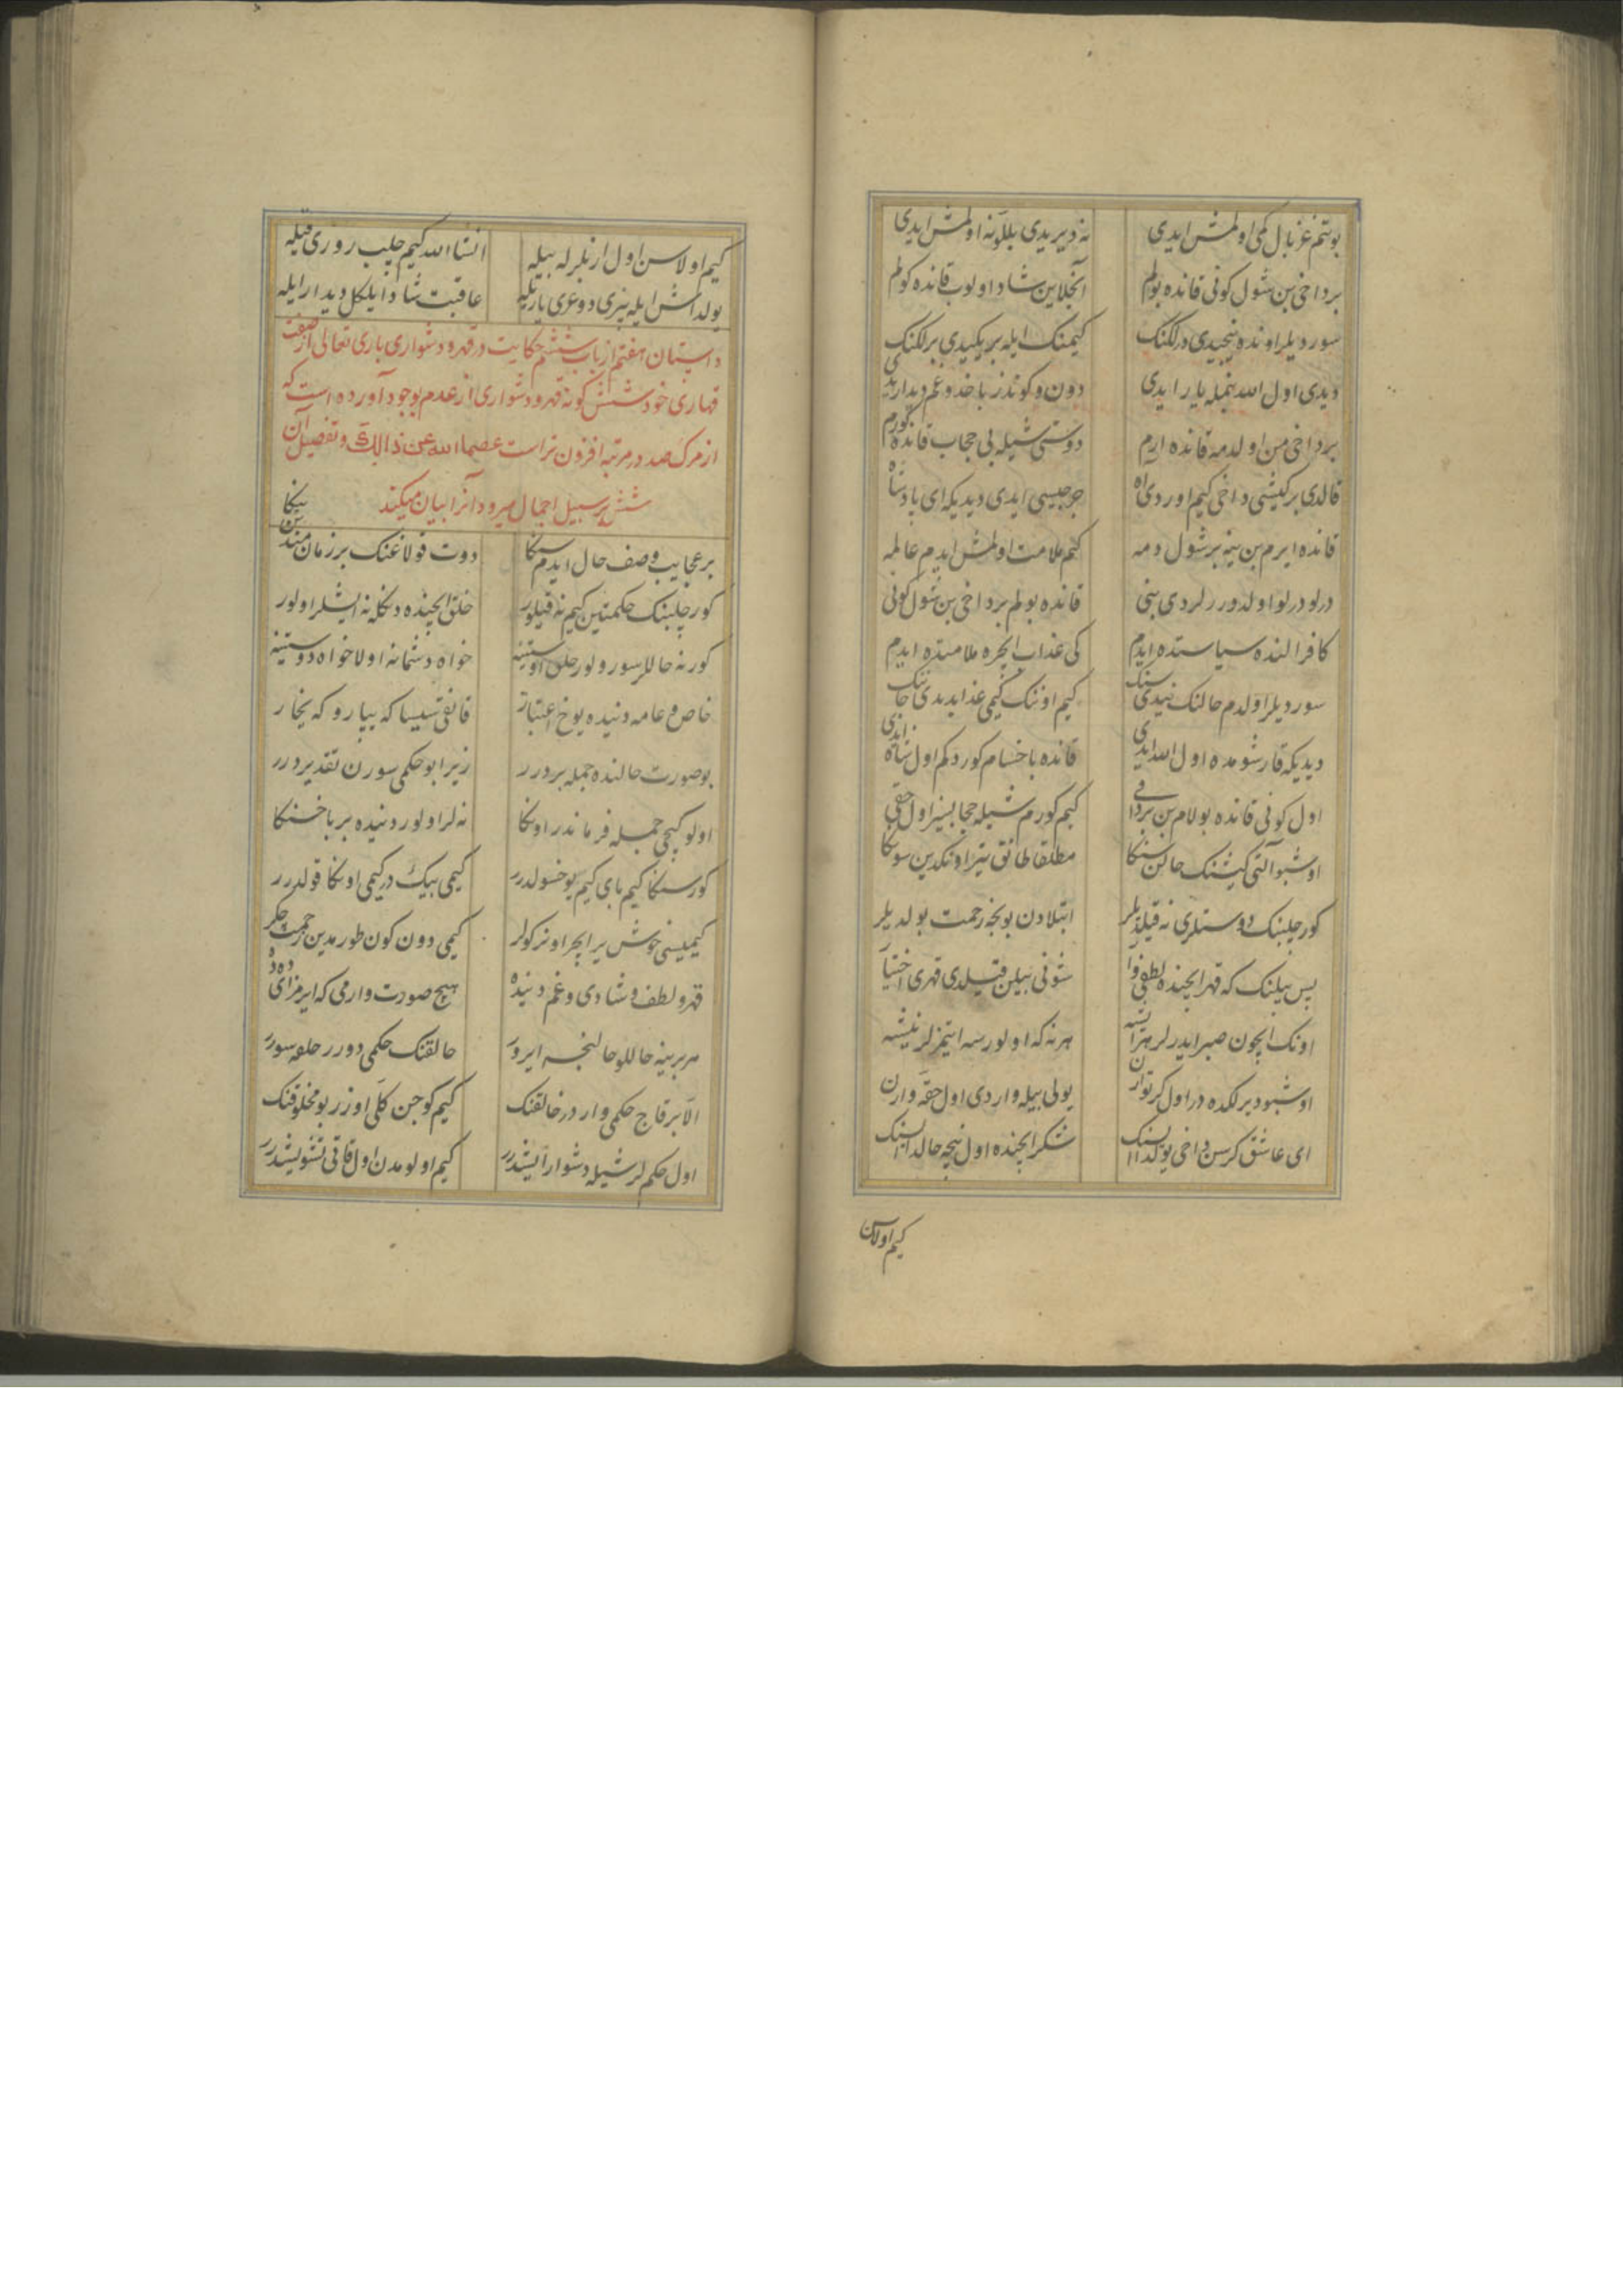 بوتنم غزبال کمی اولمش ایدی نه دیریدی بللو نه اولمش ایدی
بر داخی بن شول کونی قانده بولم آنجلاین شاد اولوب قانده کولم
سوردیلر اونده نیجیدی درلکنک کیمنک ایله بریکیدی برلکنک
دیدی اول الله بنمیله یار ایدی دون و کوندز باخدوغم دیدار ایدی
بر داخی من اول دمه قانده ارم دوستی شیله بی حجاب قانده کورم
قالدی بر کیشی داخی کیم اوردی آه جرجیسی ایدی دیدیکه ای پادشاه
قانده ایرم بن ینه بر شول دمه کیم ملامت اولمش ایدم عالمه
درلو درلو اولدوررلردی بنی قانده بولم بر داخی بن شول کونی
کافر النده سیاستده ایدم کی عذاب ایچره ملامتده ایدم
سوردیلر اول دم حالنک نیدی سنک کیم اوننک کیمی عذابدیدی جاننک
دیدیکه قارشومده اول الله ایدی قانده باخسام کوردکم اول شاه ایدی
اول کونی قانده بولام بن بر داخی کیم کورم شیله حجابسیز اول حقی
اوشبو آلتی کیشنک حالن سنکا مطلقا طانق یتر اوندین سونکا
کور چلبنک دوستلری نه قیلدیلر ابتلادن بونجه رحمت بولدیلر
پس بیلنک که قهر ایچنده لطفی وار شونی بیلن قیلدی قهری اختیار
اونک ایچون صبر ایدرلر هر ایشه هر نه که اولورسه ایتمزلر نیشه
اوشبو دیرلکده در اول کرتو ارن یولی بیله واردی اول حقه وارن
ای عاشق کر سن داخی یولداسنک شکر ایچنده اول نیچه حالداسنک
کیم اولاسن
کیم اولاسن اول ارنلرله بیله انشاالله کیم چلب روزی قیله
یولداش ایله بیزی دوغری یاریله عاقبت شاد ایلکل دیدار ایله
داستان هفتم از باب ششم حکایت در قهر و دشواری باری تعالی از صفت
قهاری خود شش کونه قهر و دشواری از عدم بوجود آورده است که
از مرک صد در مرتبه افزون تر است عصما الله عن ذالک و تفصیل آن
شش بر سبیل اجمال میرود آنرا بیان میکند
بر عجایب وصف حال ایدم سنکا دوت قولاغنک بر زمان مندن ینکا
کور چلبنک حکمتین کیم نه قیلور خلق ایچنده دنکله نه ایشلر اولور
کور نه حاللر سورولور خلق اوستینه خواه دشمانه اولا خواه دوستینه
خاص و عامه دنیده یوخ اعتبار قانقی تیسا که یپار و که یخار
بو صورت حالنده جمله بردرر زیرا بو حکمی سورن تقدیردرر
اولو کیچی جمله فرماندر اونکا نه لر اولور دنیده بر باخسنکا
کورسنکا کیم بای کیم یوخسولدرر کیمی بیک در کیمی اونکا قولدرر
کیمیسی خوش یر ایچر اونر کولر کیمی دون کون طورمدین زحمت چکر
قهر و لطف و شادی و غم دنیده هیچ صورت وارمی که ایرمز ای دده
هر بیرینه حاللو حالنجه ایرور خالقنک حکمی دورر خلقه سورر
الا بر قاج حکمی واردر خالقنک کیم کوجن کلی اوزر بو مخلوقنک
اول حکملر شیله دشوار ایشدرر کیم اولومدن اول قاتی تشویشدرر